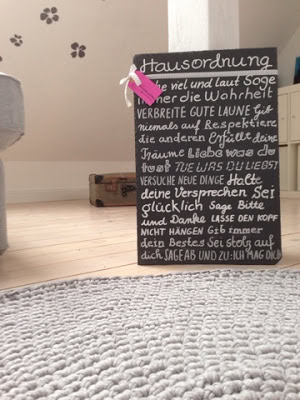 Hausordnung
viel und laut Sage
immer die Wahrheit
VERBREITE GUTE LAUNE Gib
niemals auf Respektiere
die anderen Erfülle deine
Träume Liebe was du
tust TUE WAS DU LIEBST
VERSUCHE NEUE DINGE Halte
deine Versprechen Sei
glücklich Sage Bitte
und Danke LASSE DEN KOPF
NICHT HÄNGEN Gib immer
dein Bestes Sei stolz auf
dich SAGE AB UND ZU: ICH MAG DICH